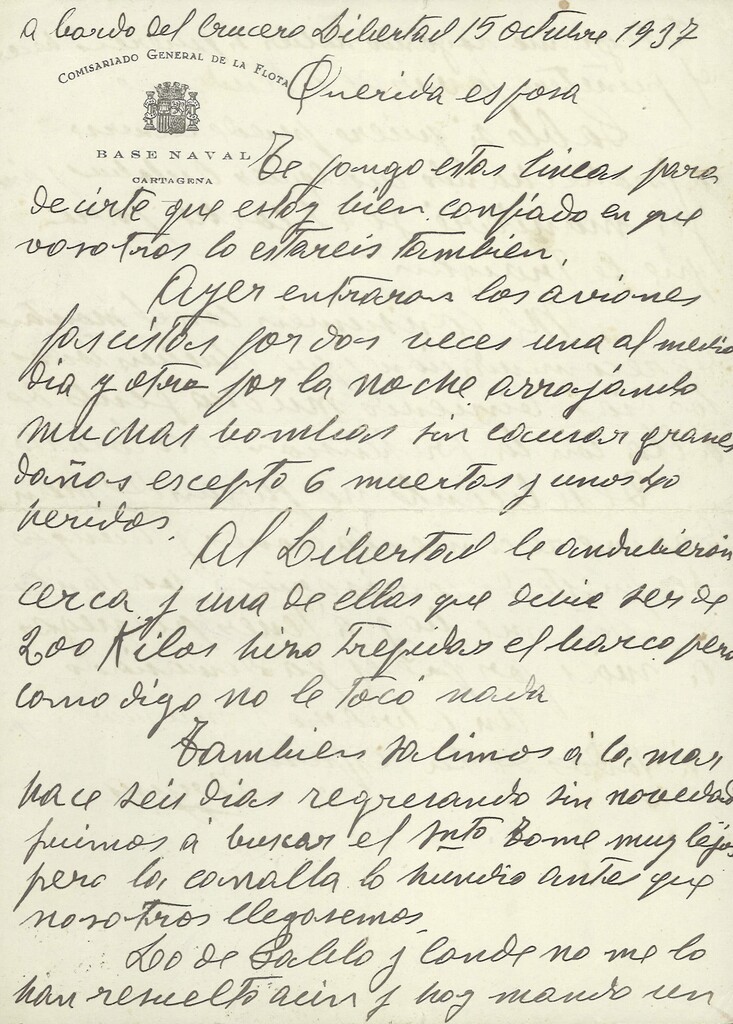 a bordo del Crucero Libertad 15 octubre 1937
COMISARIADO GENERAL DE LA FLOTA
BASE NAVAL
CARTAGENA
Querida esposa
Te pongo estas lineas para
decirte que estoy bien confiado en que
vosotros lo estareis tambien.
Ayer entraron los aviones
fascistas por dos veces una al medio
dia y otra por la noche arrojando
muchas bombas sin causar graves
daños escepto 6 muertos y unos 20
heridos.
Al Libertad le andubieron
cerca y una de ellas que debia ser de
200 Kilos hizo trepidar el barco pero
como digo no le tocó nada
Tambien salimos á la mar
hace seis dias regresando sin novedad
fuimos á buscar el Snto Tome muy lejos
pero la canalla lo hundio antes que
nosotros llegasemos.
Lo de Pablo y Conde no me lo
han resuelto aún y hoy mando un